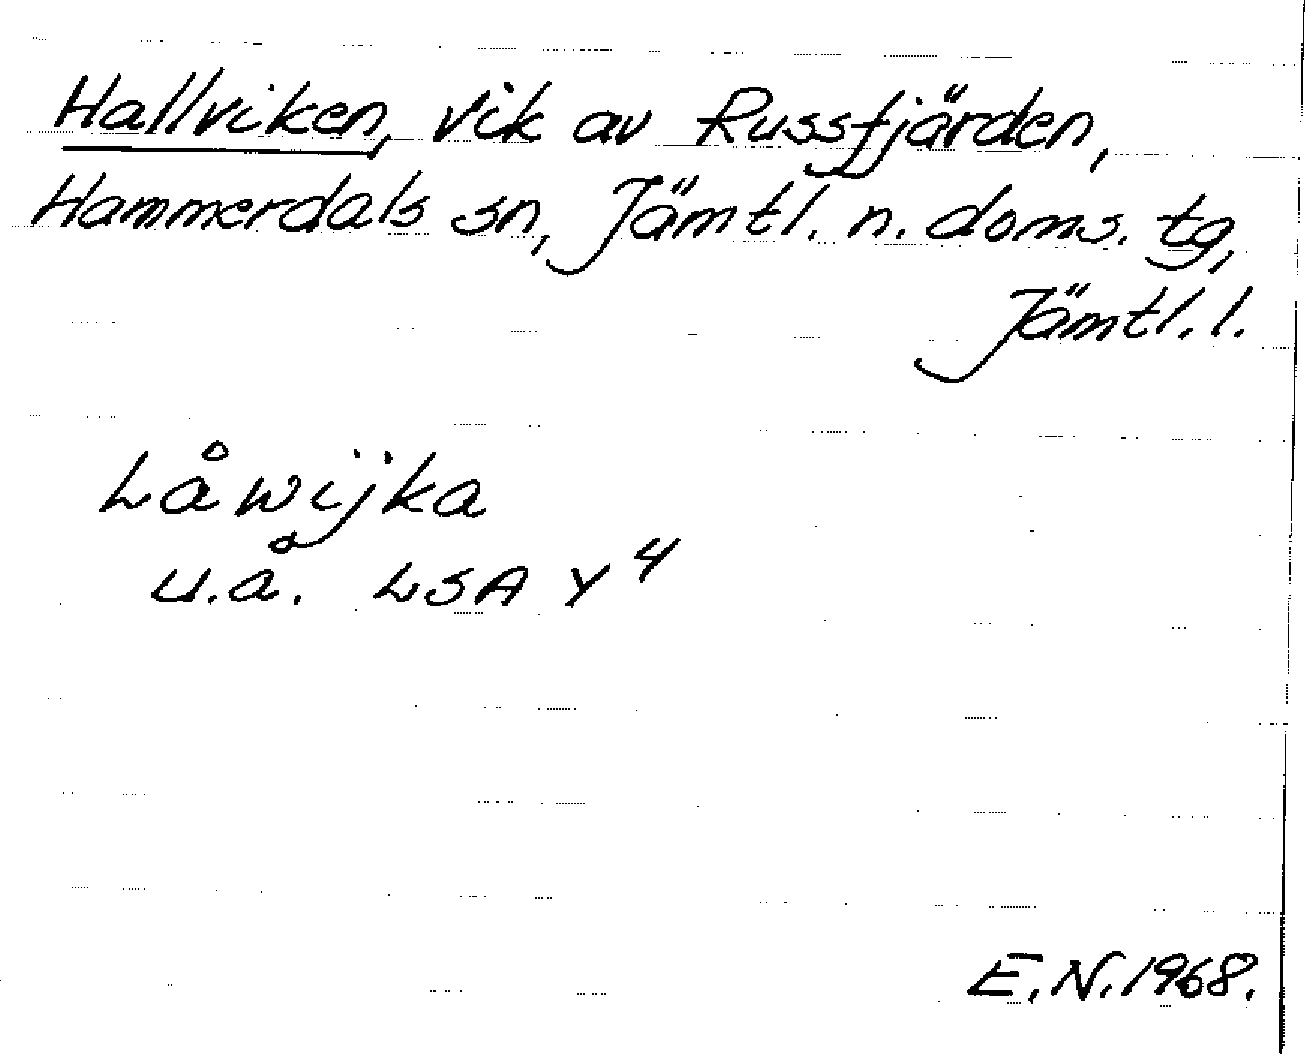 Hallviken, vik av Russfjärden,
Hammerdals sn, Jämtl. n. doms. tg,
Jämtl. l.
Låwijka
u.å. LSA Y 4
E.N. 1968.